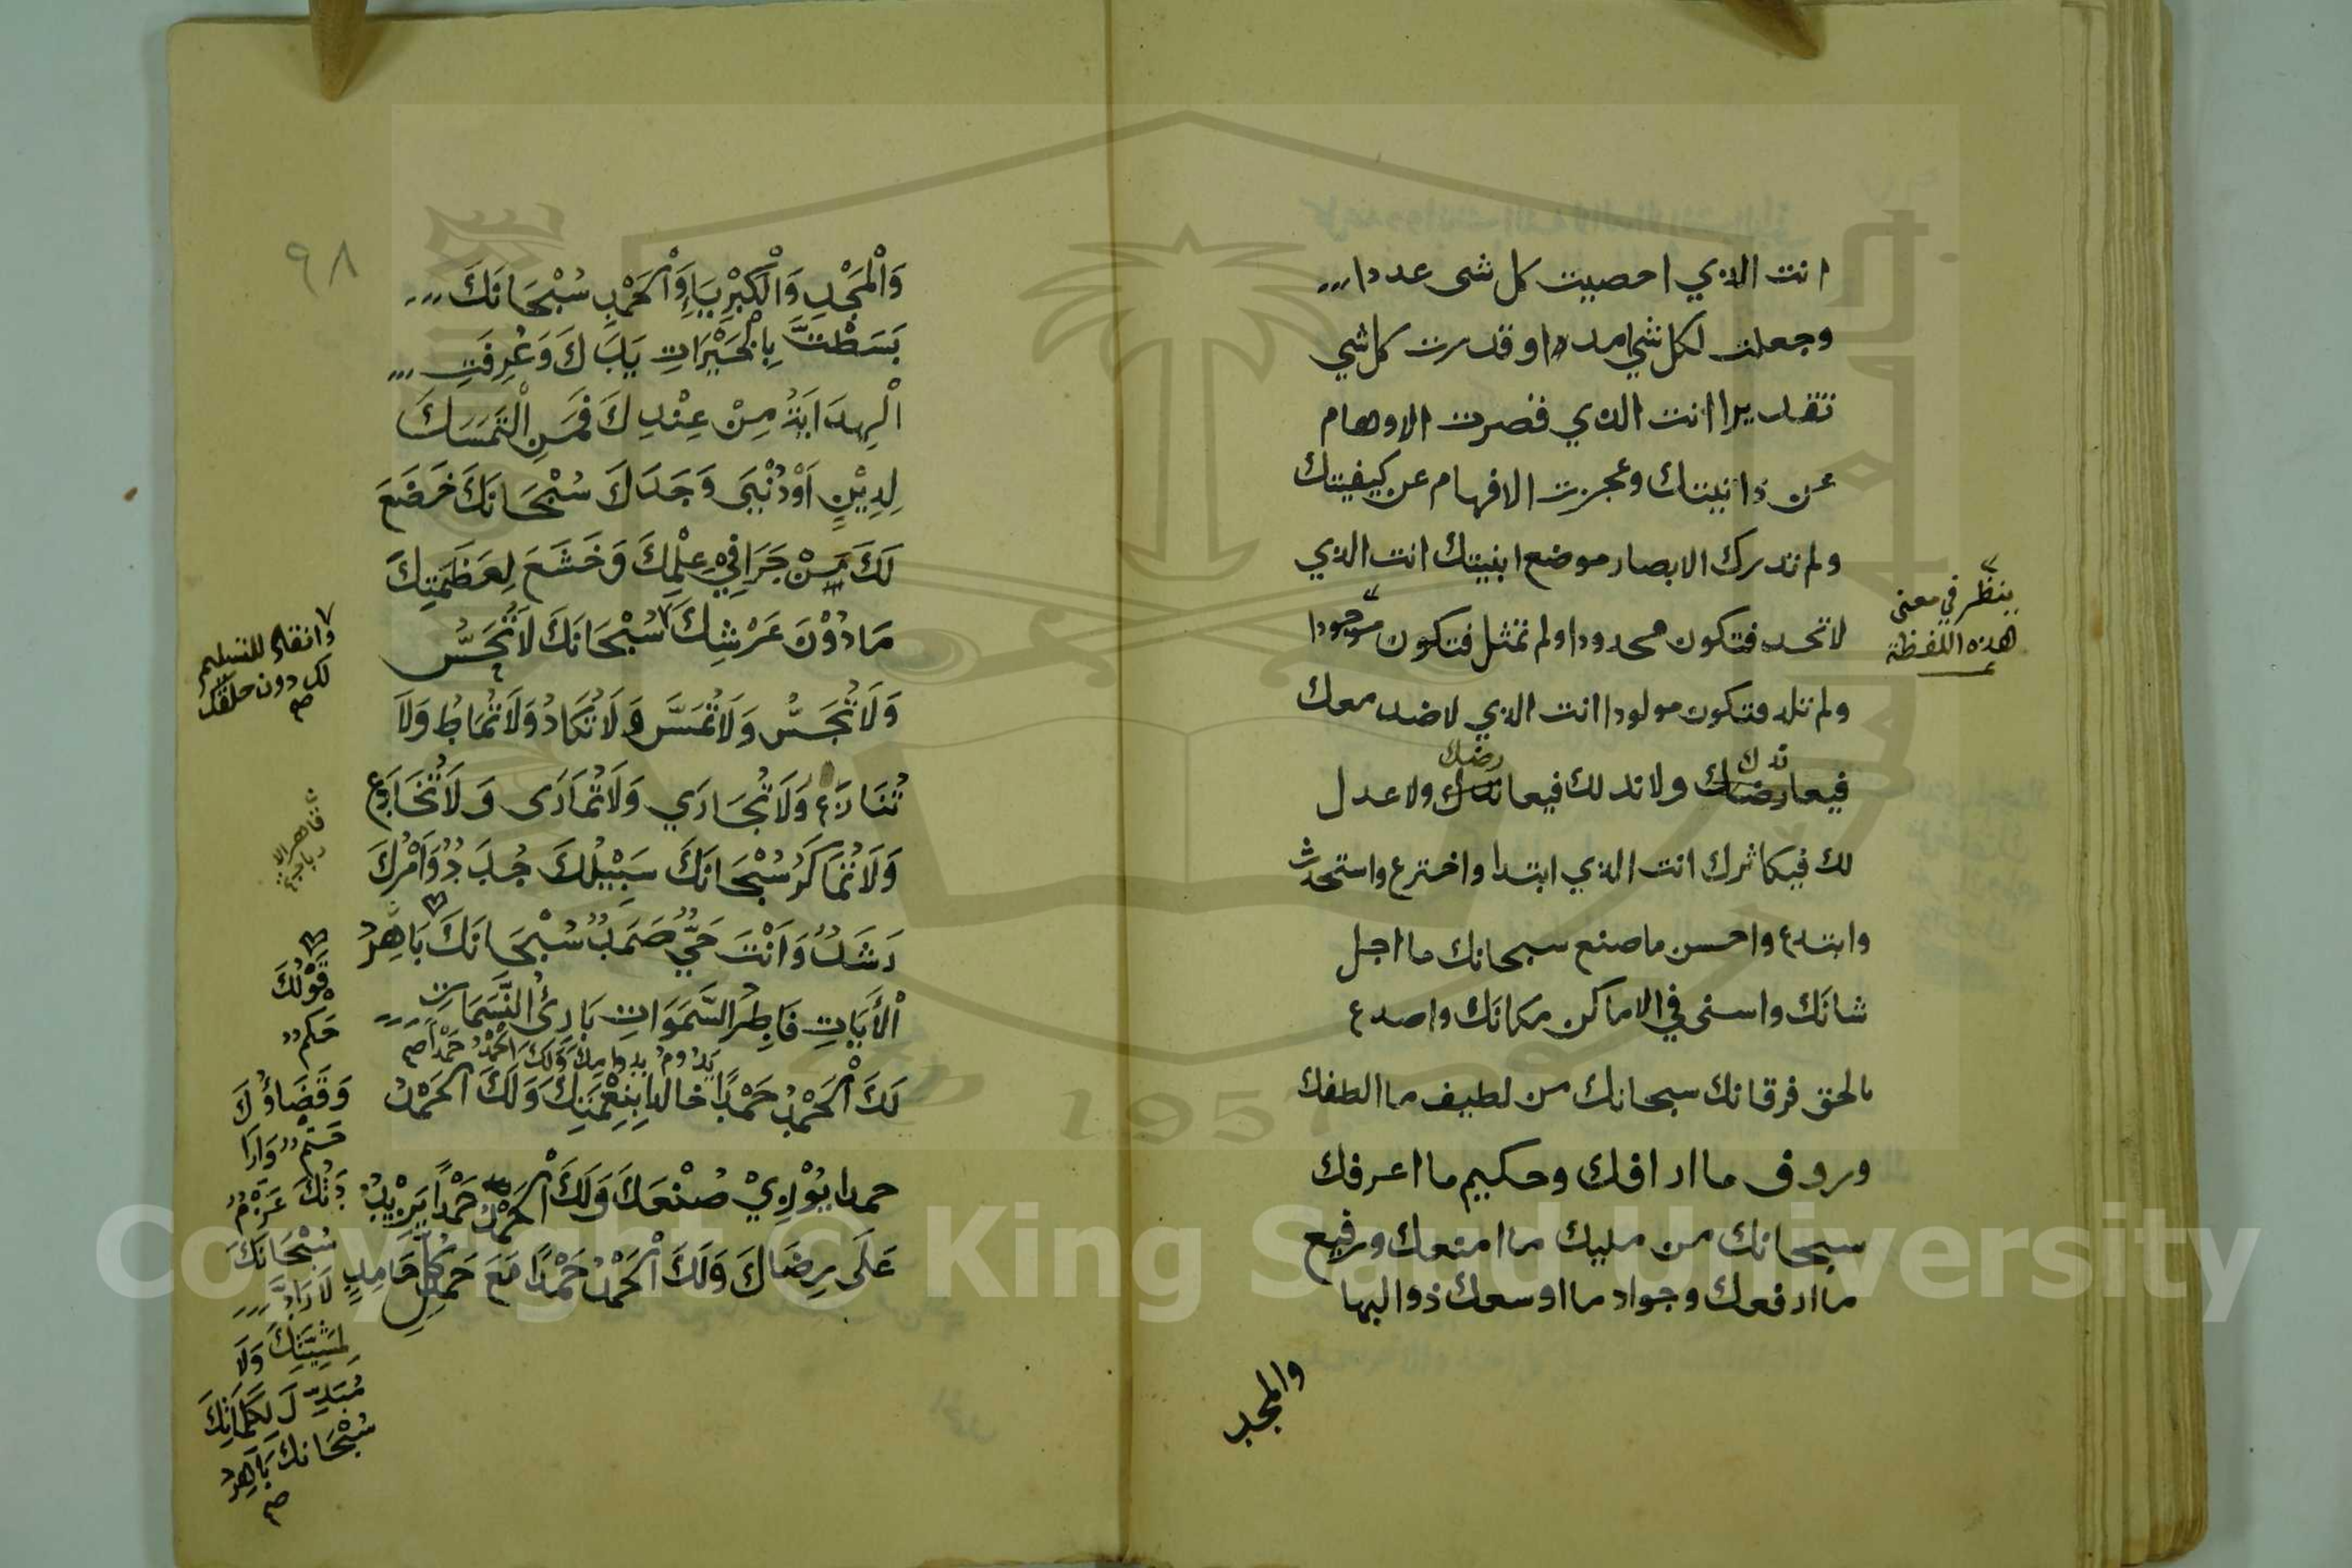 انت الذي احصيت كل شى عددا
وجعلت لكل شي امدا وقدرت كل شي
تقديرا انت الذي قصرت الاوهام
عن ذاتيتك وعجزت الافهام عن كيفيتك
ولم تدرك الابصار موضع ابنيتك انت الذي
لا تحد فتكون محدودا ولم تمثل فتكون موجودا
ينظر في معنى
هذه اللفظة
ولم تلد فتكون مولودا انت الذي لا ضد معك
ندك رضك
فيعارضك ولا ند لك فيعا ولا عدل
لك فيكاثرك انت الذي ابتدا واخترع واستحدث
وابتدع واحسن ما صنع سبحانك ما اجل
شانَك واسنى في الاماكن مكانَك واصدع
بالحق فرقانك سبحانك من لطيف ما الطفك
وروف ما ارافك وحكيم ما اعرفك
سبحانك من مليك ما امنعك ورفيع
ما ارفعك وجواد ما اوسعك ذو البها
والمجد
٩٨
وَالْمَجْدِ وَالْكِبْرِيَاءِ وَالْحَمْدِ سُبْحَانَكَ
بَسَطْتَ بِالْخَيْرَاتِ يَدَكَ وَعُرِفَتِ
الْهِدَايَةُ مِنْ عِنْدِكَ فَمَنِ الْتَمَسَكَ
لِدِيْنٍ اَوْ دُنْيَى وَجَدَكَ سُبْحَانَكَ خَضَعَ
لَكَ مَنْ جَرَا فِيْ عِلْمِكَ وَخَشَعَ لِعَظَمَتِكَ
مَا دُوْنَ عَرْشِكَ سُبْحَانَكَ لَا تُحَسُّ
وانقاد للتسليم
لك دون خلقك
صح
وَلَا تُجَسُّ وَلَا تُمَسَّ وَلَا تُكَادُ وَلَا تُمَاطُ وَلَا
تُنَازَع وَلَا تُجَارَي وَلَا تُمَارَى وَلَا تُخَادَع
وَلَا تُمَاكَرُ سُبْحَانَكَ سَبِيْلُكَ جُدَدٌ وَاَمْرُكَ
رَشَدٌ وَاَنْتَ حَيٌّ صَمَدٌ سُبْحَانَكَ بَاهِرُ
الْأَيَاتِ فَاطِرُ السَّمَوَاتِ بَارِئُ النَّسَمَاتِ
يَدُومُ بدوامِكَ وَلَكَ الْحَمْدُ حَمْدًا صح
لَكَ الْحَمْدُ حَمْدًا خالدا بِنِعْمَتِكَ وَلَكَ الْحَمْدُ
حمدا يُوْازِيْ صُنْعَكَ وَلَكَ الْحَمْدُ حَمْدًا يَزِيْدُ
عَلَى رِضَاكَ وَلَكَ الْحَمْدُ حَمْدًا مَعَ حَمْدِ كُلِّ حَامِدٍ
قَوْلُكَ
حَكمٌ
وَقَضَاؤُكَ
حَتْمٌ وَاِرَا
دَتُكَ عَزْمٌ
سُبْحَانَكَ
لَا رَادَّ
لِمَشِيَّتِكَ وَلَا
مُبَدِّلَ لِكَلِمَاتِكَ
سُبْحَانك بَاهِرُ
صح
Copyright © King Saud University
1957